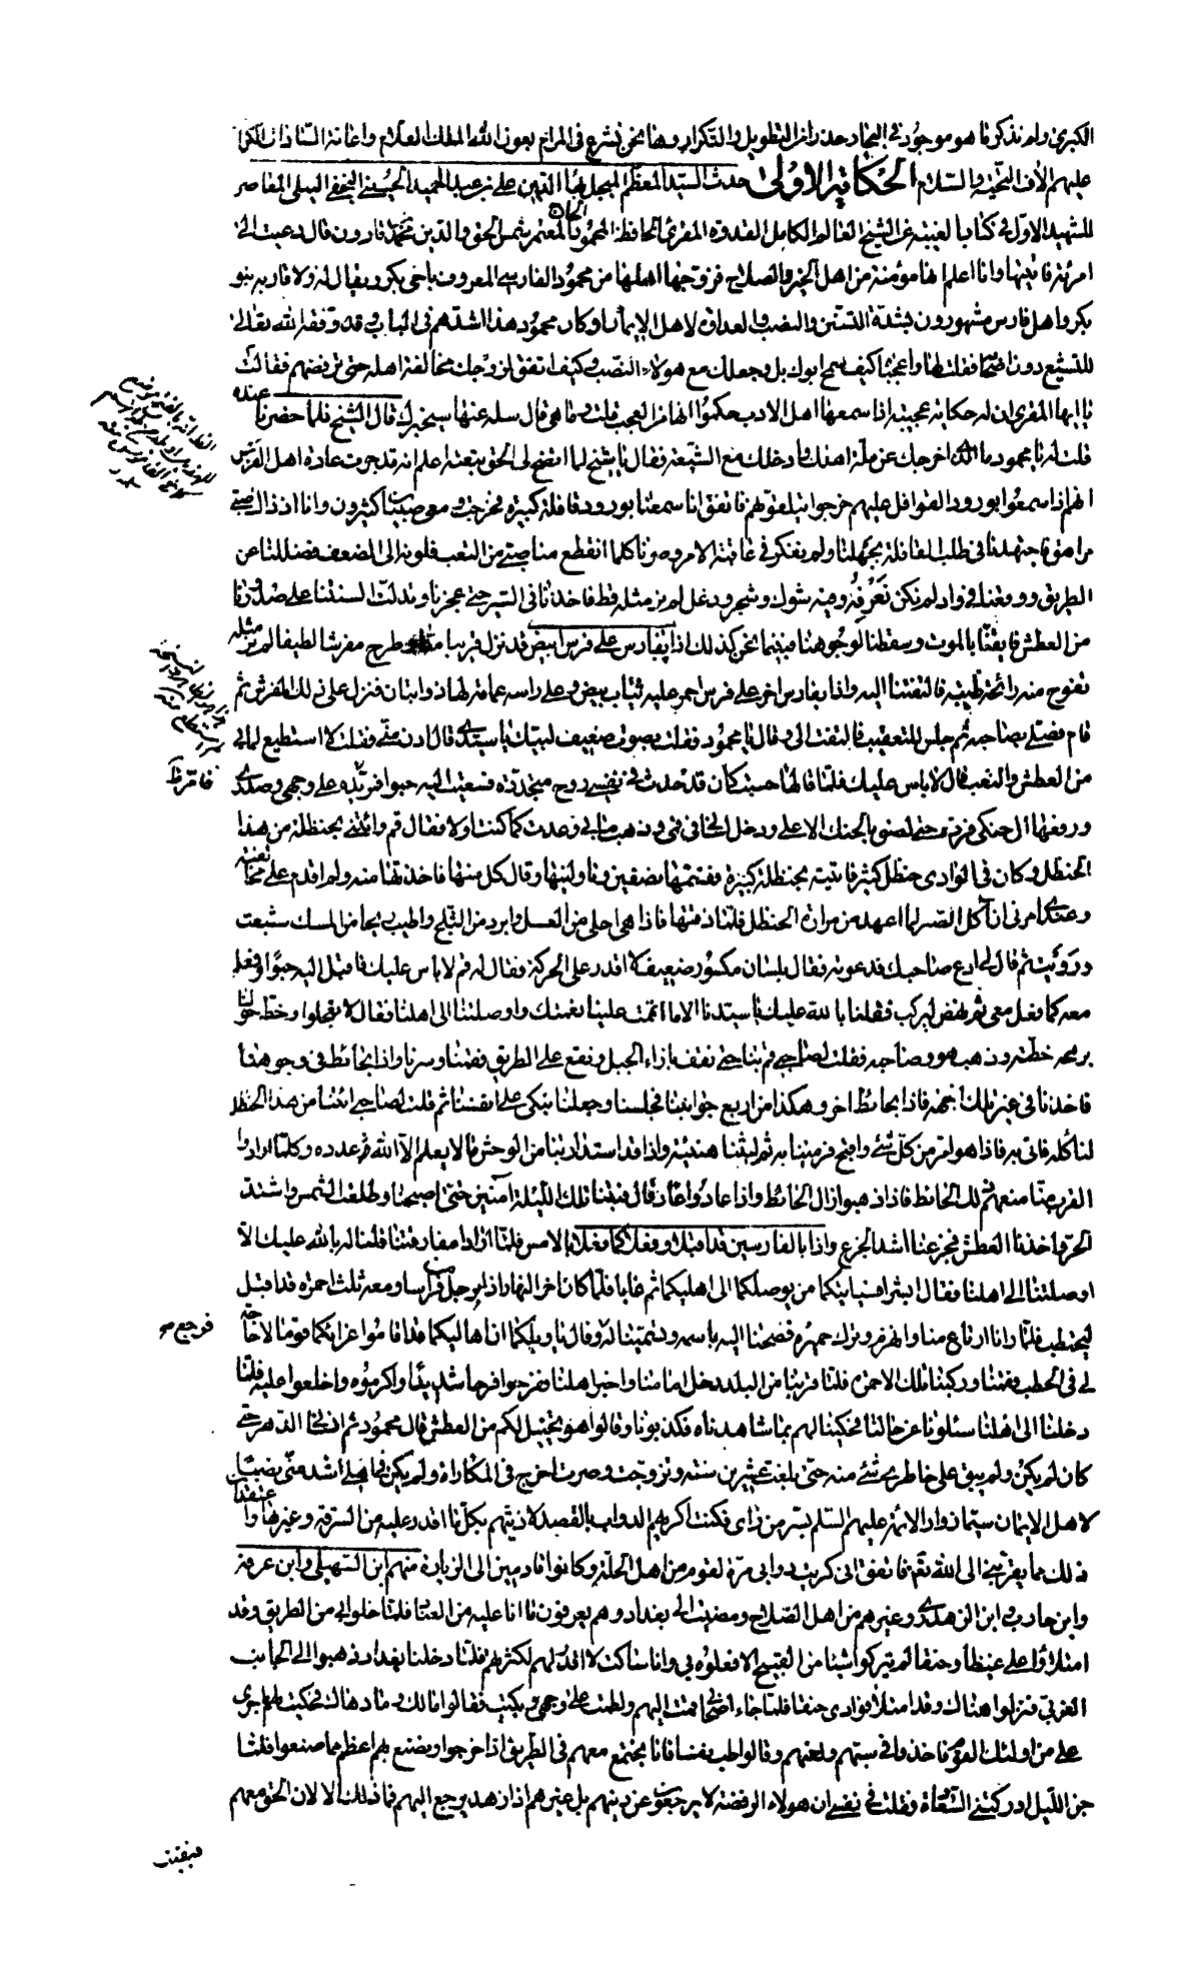 الكبرى ولم نذكر ما هو موجود في البحار حذرا من التطويل والتكرار وها نحن نشرع في المرام بعون الله الملك العلام واعانة السادات الكرام
عليهم الاف التحية والسلام الحكاية الاولى حدث السيد المعظم المبجل بهاء الدين علي بن عبد الحميد الحسيني النجفي النيلي المعاصر
للشهيد الاول في كتاب الغيبة عن الشيخ العالم الكامل القدوة المقرئ الحافظ المحمود الحاج المعتمر شمس الحق والدين محمد بن قارون قال دعيت الى
امرئة فاتيتها وانا اعلم انها مؤمنة من اهل الخير والصلاح فزوجها اهلها من محمود الفارسي المعروف باخي بكر ويقال له ولاقاربه بنو
بكر واهل فارس مشهورون بشدة التسنن والنصب والعداوة لاهل الايمان وكان محمود هذا اشدهم في الباب وقد وفقه الله تعالى
للتشيع دون اصحابه فقلت لها واعجباه كيف سمح ابوك بك وجعلك مع هؤلاء النصب وكيف اتفق لزوجك مخالفة اهله حتى ترفضهم فقالت
يا ايها المقرئ ان له حكاية عجيبة اذا سمعها اهل الادب حكموا انها من العجب قلت وما هي قال سله عنها سيخبرك قال الشيخ فلما حضرنا عنده
قلت له يا محمود ما الذي اخرجك عن ملة اهلك وادخلك مع الشيعة فقال يا شيخ لما اتضح لي الحق تبعته اعلم انه قد جرت عادة اهل الفرس
انهم اذا سمعوا بورود القوافل عليهم خرجوا يتلقونهم فاتفق انا سمعنا بورود قافلة كبيرة فخرجت ومعي صبيان كثيرون وانا اذ ذاك صبي
مراهق فاجتهدنا في طلب القافلة بجهلنا ولم نفكر في عاقبة الامر وصرنا كلما انقطع منا صبي من التعب لاموه الى الضعف فضللنا عن
الطريق ووقعنا في واد لم نكن نعرفه وفيه شوك وشجر ودغل لم نر مثله قط فاخذنا في السير حتى عجزنا وتدلت السنتنا على صدورنا
من العطش فايقنا بالموت وسقطنا لوجوهنا فبينما نحن كذلك اذا بفارس على فرس ابيض قد نزل قريبا منا وطرح مفرشا لطيفا لم نر مثله
تفوح منه رائحة طيبة فالتفتنا اليه واذا بفارس اخر على فرس احمر عليه ثياب بيض وعلى راسه عمامة لها ذوابتان فنزل على ذلك المفرش ثم
قام فصلى بصاحبه ثم جلس للتعقيب فالتفت الي وقال يا محمود فقلت بصوت ضعيف لبيك يا سيدي قال ادن مني فقلت لا استطيع لما بي
من العطش والتعب قال لا باس عليك فلما قالها حسبت كان قد حدث في نفسي روح متجددة فسعيت اليه حبوا فمر يده على وجهي وصدري
ورفعها الى حنكي فرده حتى لصق بالحنك الاعلى ودخل لساني في فمي وذهب ما بي وعدت كما كنت اولا فقال قم وائتني بحنظلة من هذا
الحنظل وكان في الوادي حنظل كثير فاتيته بحنظلة كبيرة فقسمها نصفين وناولنيها وقال كل منها فاخذتها منه ولم اقدم على مخالفته
وعندي امرني ان اكل الصبر لما اعهد من مرارة الحنظل فلما ذقتها فاذا هي احلى من العسل وابرد من الثلج واطيب ريحا من المسك شبعت
ورويت ثم قال لي ادع صاحبك فدعوته فقال بلسان مكسور ضعيف لا اقدر على الحركة فقال له قم لا باس عليك فاقبل اليه حبوا وفعل
معه كما فعل معي ثم نهض ليركب فقلنا بالله عليك يا سيدنا الا ما اتممت علينا نعمتك واوصلتنا الى اهلنا فقال لا تعجلوا وخط حولنا
برمحه خطة وذهب هو وصاحبه فقلت لصاحبي قم بنا حتى نقف بازاء الجبل ونقع على الطريق فقمنا وسرنا واذا بحائط في وجوهنا
فاخذنا في غير تلك الجهة فاذا بحائط اخر وهكذا من اربع جوانبنا فجلسنا وجعلنا نبكي على انفسنا ثم قلت لصاحبي ائتنا من هذا الحنظل
لناكله فاتى به فاذا هو امر من كل شيء واقبح فرمينا به ثم لبثنا هنيئة واذا قد استدار بنا من الوحش ما لا يعلم الا الله عدده وكلما ارادوا
القرب منا منعهم ذلك الحائط فاذا ذهبوا زال الحائط واذا عادوا عاد قال فبتنا تلك الليلة آمنين حتى اصبحنا وطلعت الشمس واشتد
الحر واخذنا العطش فجزعنا اشد الجزع واذا بالفارسين قد اقبلا وفعلا كما فعلا بالامس فلما ارادا مفارقتنا قلنا له بالله عليك الا
اوصلتنا الى اهلنا فقال ابشرا فسياتيكما من يوصلكما الى اهليكما ثم غابا فلما كان اخر النهار اذا برجل من فراسا ومعه ثلث احمرة قد اقبل
ليحتطب فلما رانا ارتاع منا وانهزم وترك حميره فصحنا اليه باسمه وتسمينا له فرجع وقال يا ويلكما ان اهاليكما قد اقاموا عزائكما قوما لا حاجة
لي في الحطب فقمنا وركبنا تلك الاحمرة فلما قربنا من البلد دخل امامنا واخبر اهلنا ففرحوا فرحا شديدا واكرموه واخلعوا عليه فلما
دخلنا الى اهلنا سئلونا عن حالنا فحكينا لهم بما شاهدناه فكذبونا وقالوا هو تخييل لكم من العطش قال محمود ثم انساني الدهر حتى
كان لم يكن ولم يبق على خاطري شيء منه حتى بلغت عشرين سنة وتزوجت وصرت اخرج في المكاراة ولم يكن في اهلي اشد مني نصبا
لاهل الايمان سيما زوار الائمة عليهم السلم بسر من راى فكنت اكريهم الدواب بالقصد لاذيتهم بكل ما اقدر عليه من السرقة وغيرها واعتقد
ذلك مما يقربني الى الله تعالى فاتفق اني كريت دوابي مرة لقوم من اهل الحلة وكانوا قادمين الى الزيارة منهم ابن السهيلي وابن عرفة
وابن حارب وابن الزهدري وغيرهم من اهل الصلاح ومضيت الى بغداد وهم يعرفون ما انا عليه من العناد فلما خلوا بي من الطريق وقد
امتلاوا علي غيظا وحنقا لم يتركوا شيئا من القبيح الا فعلوه بي وانا ساكت لا اقدر لهم لكثرتهم فلما دخلنا بغداد ذهبوا الى الجانب
الغربي فنزلوا هناك وقد امتلا فوادي حنقا فلما جاء اصحابي قمت اليهم ولطمت على وجهي وبكيت فقالوا مالك وما دهاك فحكيت لهم ما جرى
علي من اولئك القوم فاخذوا في سبهم ولعنهم وقالوا طب نفسا فانا نجتمع معهم في الطريق اذا خرجوا ونصنع بهم اعظم مما صنعوا فلما
جن الليل ادركتني السعادة فقلت في نفسي ان هؤلاء الرفضة لا يرجعون عن دينهم بل غيرهم اذا زهد يرجع اليهم فما ذلك الا لان الحق معهم
فبقيت